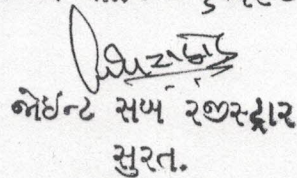 જોઇન્ટ સબ રજીસ્ટ્રાર
સુરત.